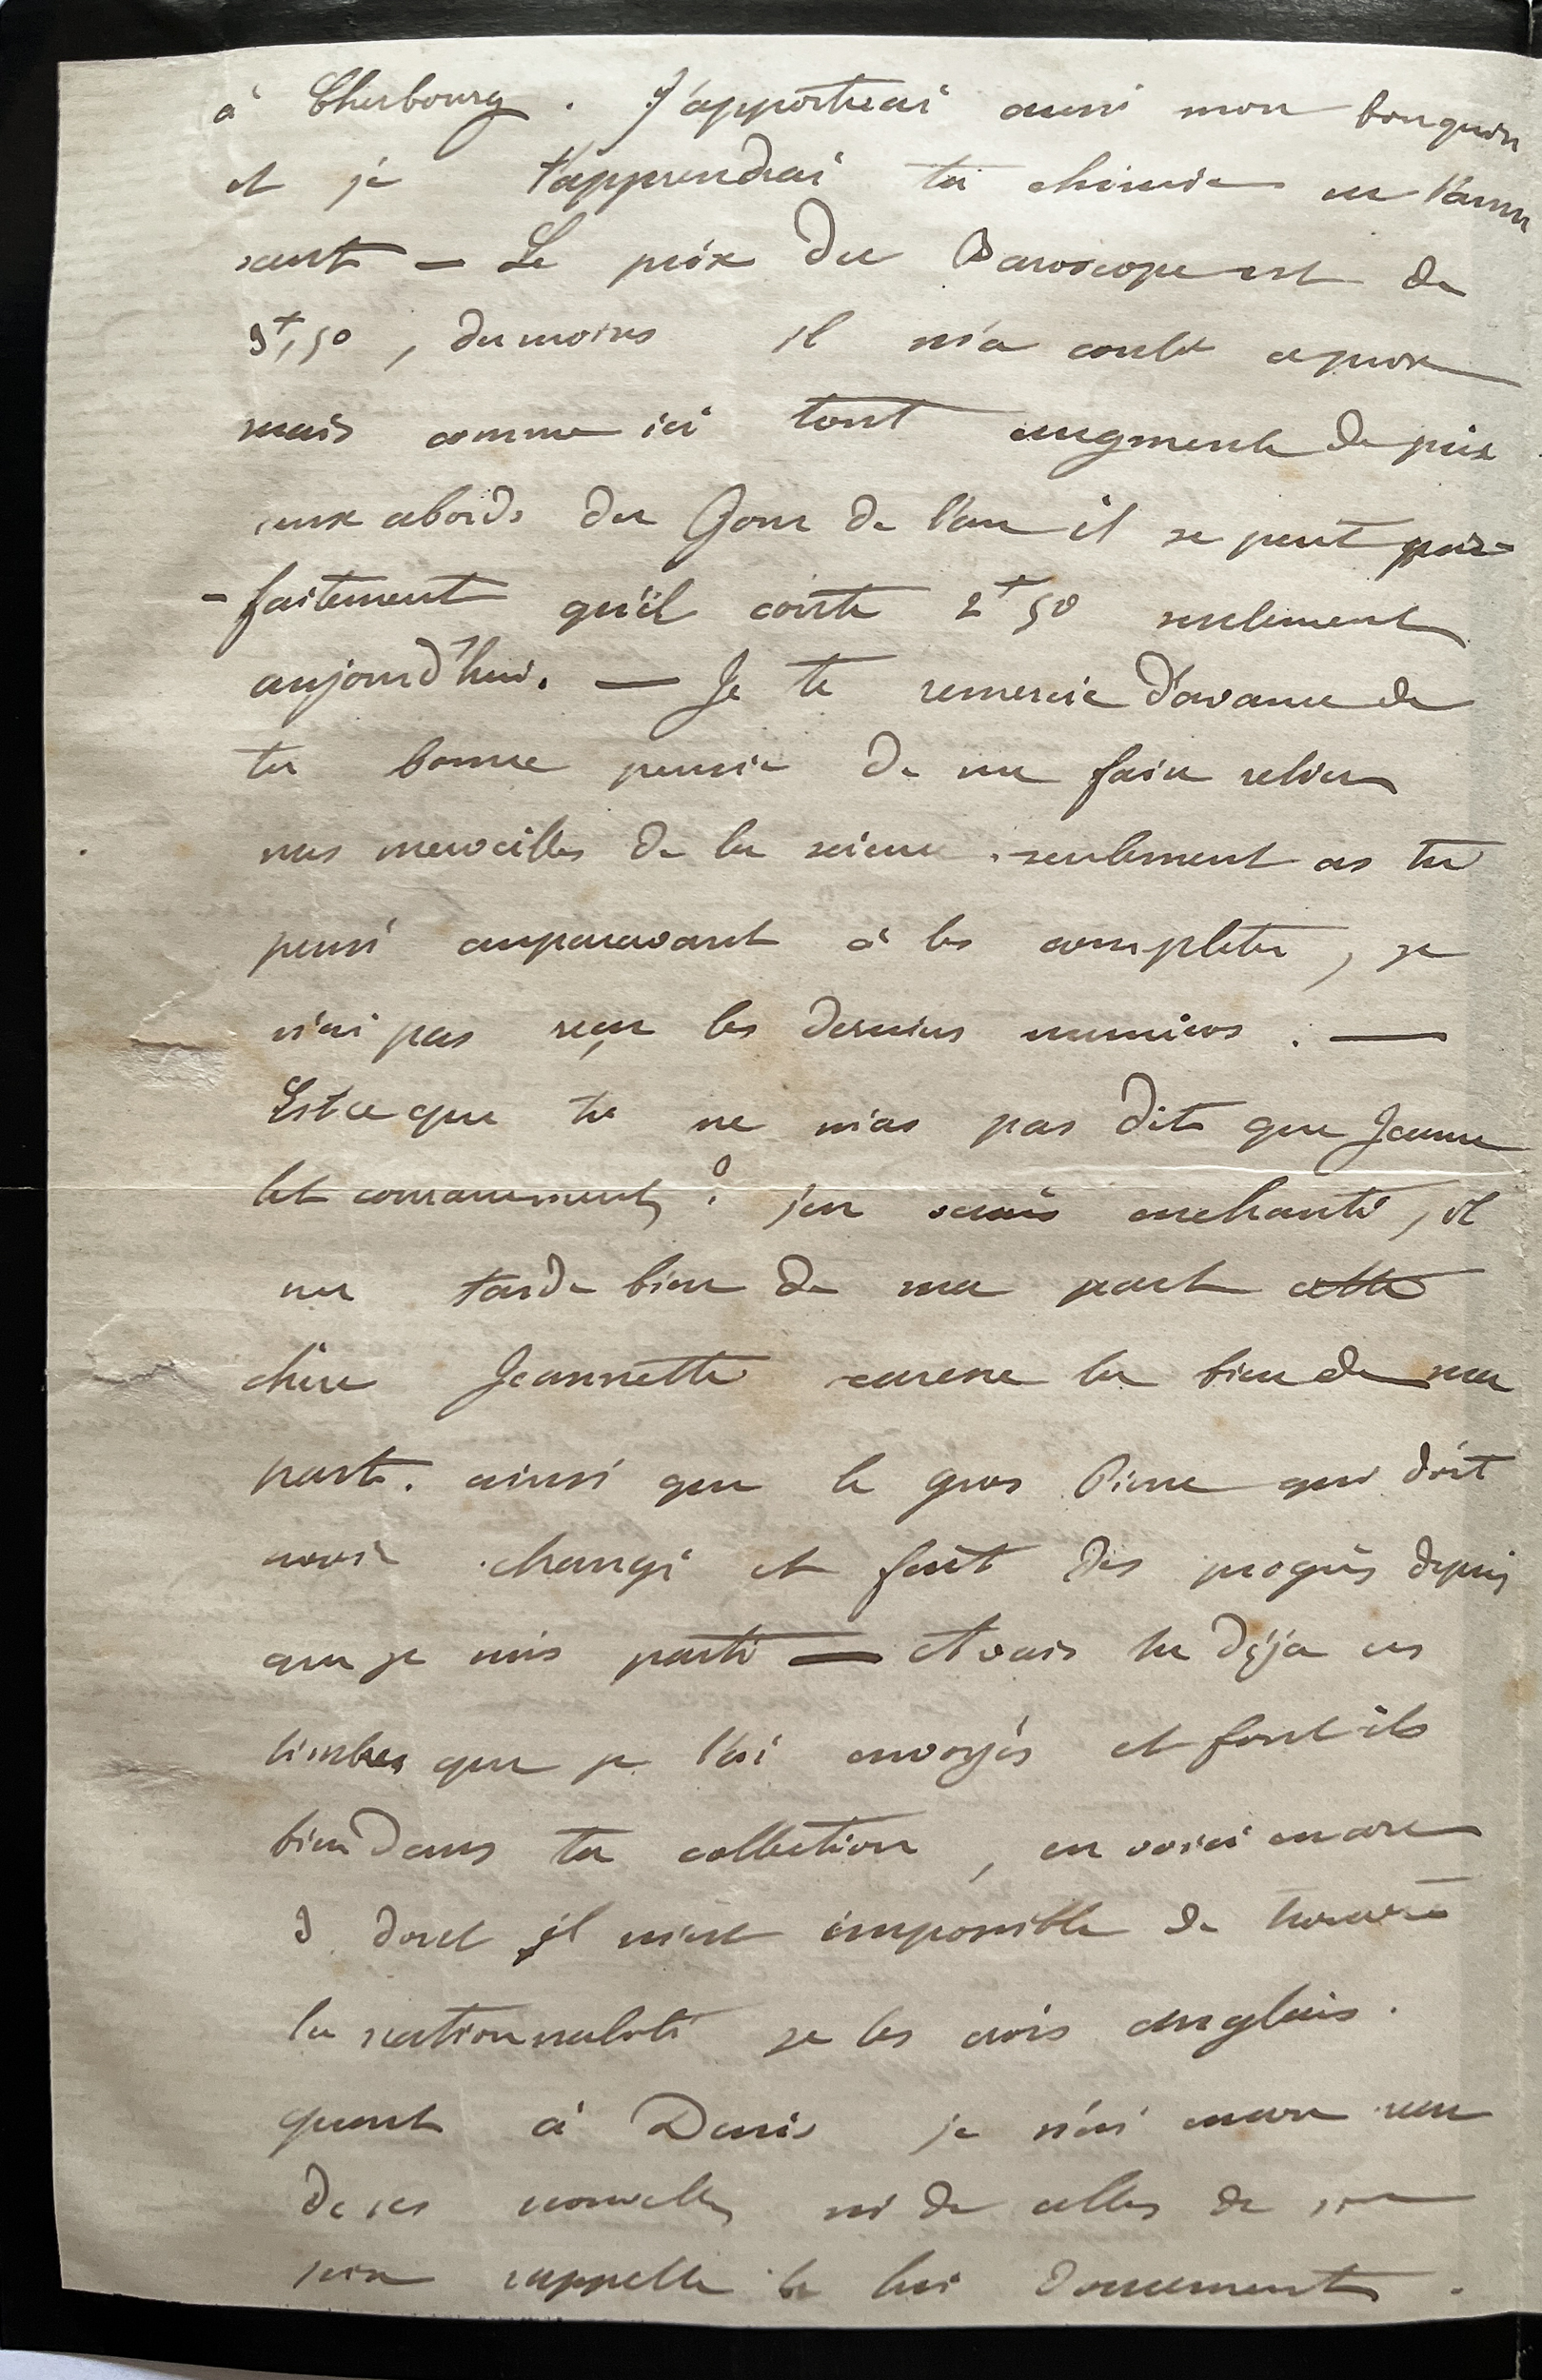 à Cherbourg. J'apporterai aussi mon bouquin
et je t'apprendrai ta chimie en t'amu
sant — Le prix du Baroscope est de
3f,50, du moins il m'a couté ce prix
mais comme ici tout augmente de prix
aux abords du Jour de l'an il se peut par-
-faitement qu'il coûte 2f50 seulement
aujourd'hui. — Je te remercie d'avance de
ta bonne pensée de me faire relier
mes merveilles de la science. seulement as tu
pensé auparavant à les completer, je
n'ai pas reçu les derniers numéros. —
Est ce que tu ne m'as pas dit que Jeanne
lit couramment ? j'en suis enchanté, il
me tarde bien de ma part cette
chère Jeannette caresse la bien de ma
part. ainsi que le gros Pierre qui doit
avoir changé et fait des progrès depuis
que je suis parti — Avais tu déja ces
timbres que je t'ai envoyés et font ils
bien dans ta collection, en voici encore
3 dont il m'est impossible de trouver
la nationnalité je les crois anglais.
quant à Denis je n'ai encore reçu
de ses nouvelles ni de celles de
rappelle le lui doucement.